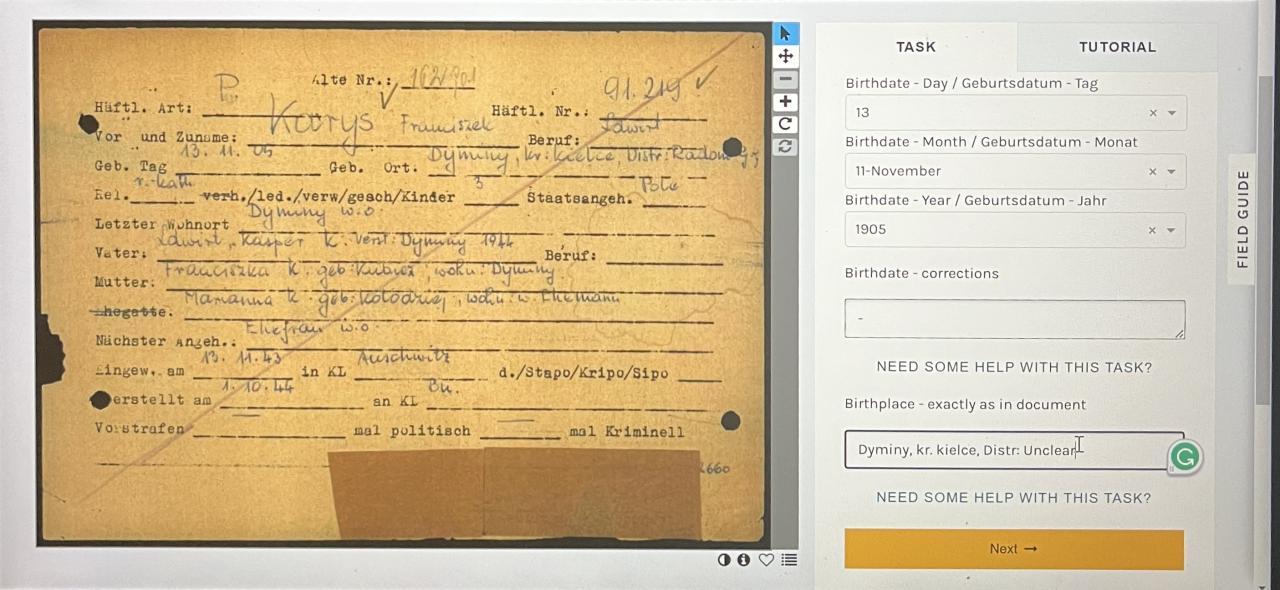 Alte Nr.:
91.219
Häftl. Art: P.
Häftl. Nr.:
Karys Franciszek
Ldwirt
Vor und Zuname:
Beruf:
13. 11. 05
Dyminy, kr: kielce, Distr: Radom
Geb. Tag Geb. Ort:
r.-kath. 3 Pole
Rel. verh./led./verw/gesch/Kinder Staatsangeh.
Dyminy w.o.
Letzter Wohnort
Ldwirt, Kasper K. verst: Dyminy 1944
Vater: Beruf:
Franciszka K. geb: Kubicz, wohn: Dyminy
Mutter:
Marianna K. geb: Kolodziej, wohn: w.
Ehegatte:
Ehefrau w.o.
Nächster Angeh.:
13. 11. 43 Auschwitz
Eingew. am in KL d./Stapo/Kripo/Sipo
1. 10. 44 Bu.
erstellt am an KL
Vorstrafen mal politisch mal Kriminell
660
TASK
TUTORIAL
Birthdate - Day / Geburtsdatum - Tag
13
Birthdate - Month / Geburtsdatum - Monat
11-November
Birthdate - Year / Geburtsdatum - Jahr
1905
Birthdate - corrections
-
NEED SOME HELP WITH THIS TASK?
Birthplace - exactly as in document
Dyminy, kr. kielce, Distr: Unclear
NEED SOME HELP WITH THIS TASK?
Next →
FIELD GUIDE